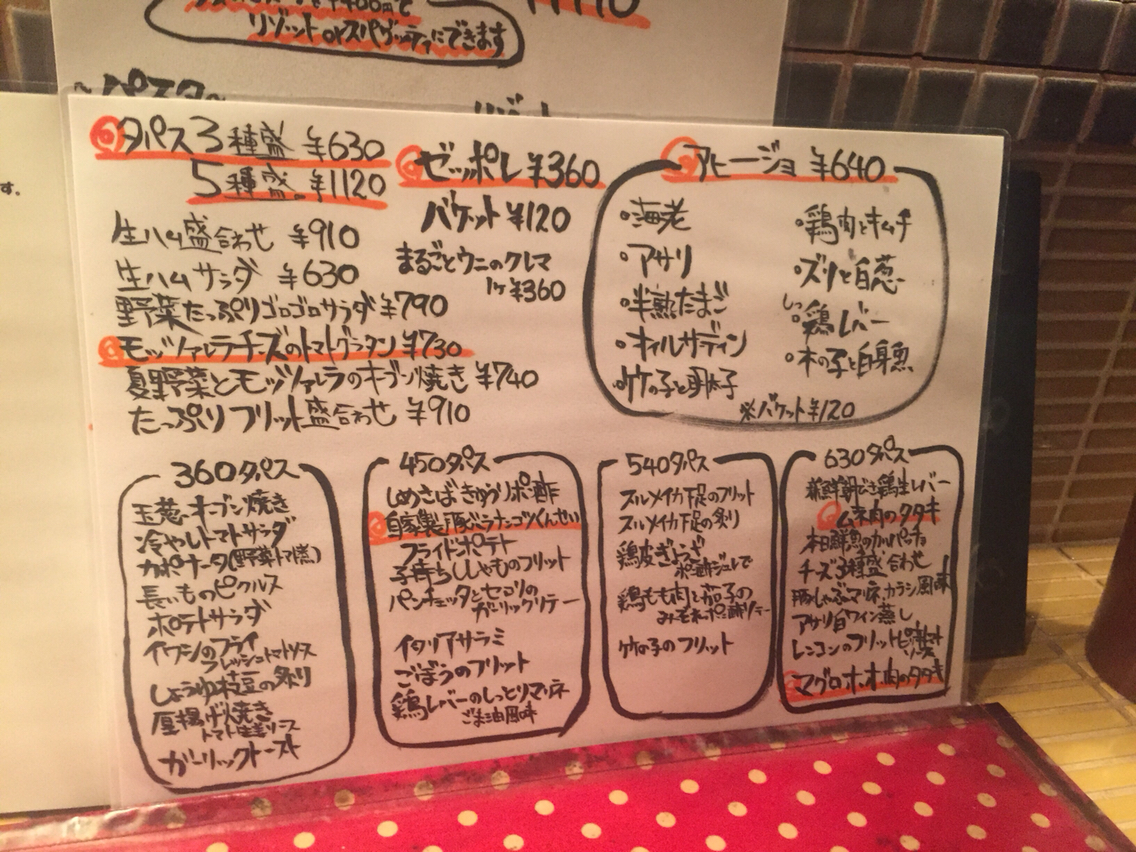 リゾットorスパゲッティにできます
~パスタ~
タパス3種盛 ¥630
5種盛 ¥1120
生ハム盛合わせ ¥910
生ハムサラダ ¥630
野菜たっぷりゴロゴロサラダ ¥790
モッツァレラチーズのトマトグラタン ¥730
夏野菜とモッツァレラのオーブン焼き ¥740
たっぷりフリット盛合わせ ¥910
ゼッポレ ¥360
バケット ¥120
まるごとウニのクレマ
1ケ ¥360
アヒージョ ¥640
・海老
・アサリ
・半熟たまご
・オイルサーディン
・竹の子と明太子
・鶏肉とキムチ
・ズリと白葱
・鶏レバー
・木の子と白身魚
※バケット¥120
360タパス
玉葱オーブン焼き
冷やしトマトサラダ
カポナータ
長いものピクルス
ポテトサラダ
イワシのフライ
フレッシュトマトソース
しょうゆ枝豆の炙り
厚揚げ焼き
ガーリックトースト
450タパス
しめさばきゅうりポン酢
自家製豚バラナンコツくんせい
フライドポテト
子持ちししゃものフリット
パンチェッタとセロリの
ガーリックソテー
イタリアサラミ
ごぼうのフリット
鶏レバーのしっとりマリネ
ごま油風味
540タパス
スルメイカ下足のフリット
スルメイカ下足の炙り
鶏皮ぎょうざ
ポン酢ジュレで
鶏もも肉と茄子の
みぞれポン酢ソテー
竹の子のフリット
630タパス
新鮮朝びき鶏生レバー
ムネ肉のタタキ
本日鮮魚のカルパッチョ
チーズ3種盛合わせ
豚しゃぶマリネ カラシ風味
アサリ白ワイン蒸し
レンコンのフリット
マグロホホ肉のタタキ